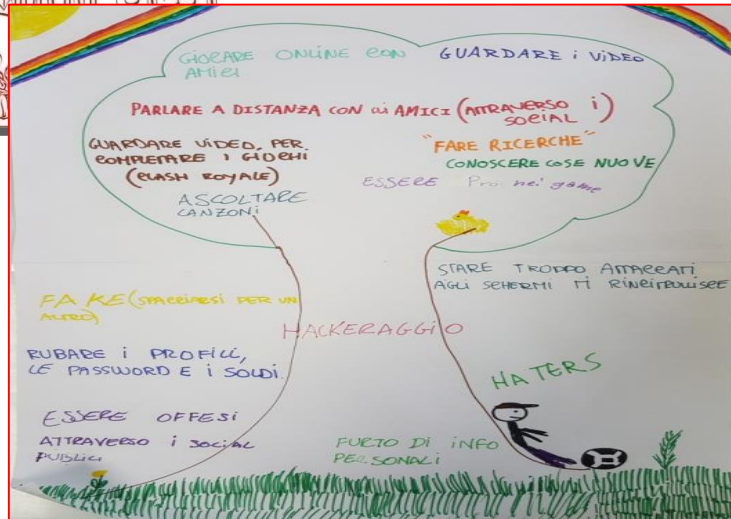 GIOCARE ONLINE CON
AMICI
GUARDARE i VIDEO
PARLARE A DISTANZA CON Gli AMICI (ATTRAVERSO i
SOCIAL)
GUARDARE VIDEO, PER
COMPLETARE I GIOCHI
(CLASH ROYALE)
"FARE RICERCHE"
CONOSCERE COSE NUOVE
ESSERE Pro nei game
ASCOLTARE
CANZONI
STARE TROPPO ATTACCATI
AGLI SCHERMI TI RINCITRULLISCE
FAKE (SPACCIARSI PER UN
ALTRO)
HACKERAGGIO
RUBARE i PROFILI,
LE PASSWORD E i SOLDI.
HATERS
ESSERE OFFESI
ATTRAVERSO i SOCIAL
PUBLICI
FURTO DI INFO
PERSONALI